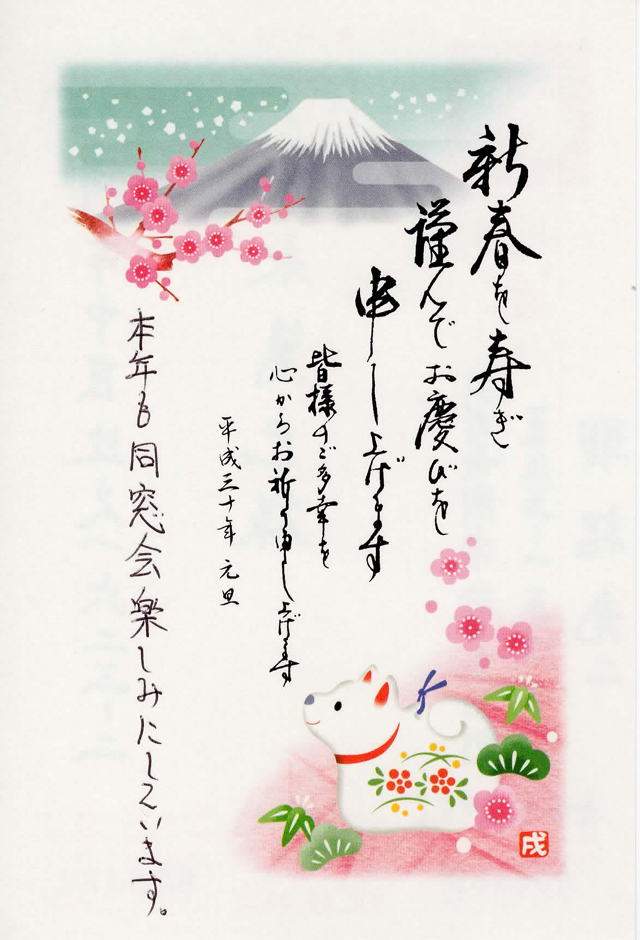 新春を寿ぎ
謹んでお慶びを
申し上げます
皆様のご多幸を
心からお祈り申し上げます
平成三十年 元旦
本年も同窓会楽しみにしています。
戌